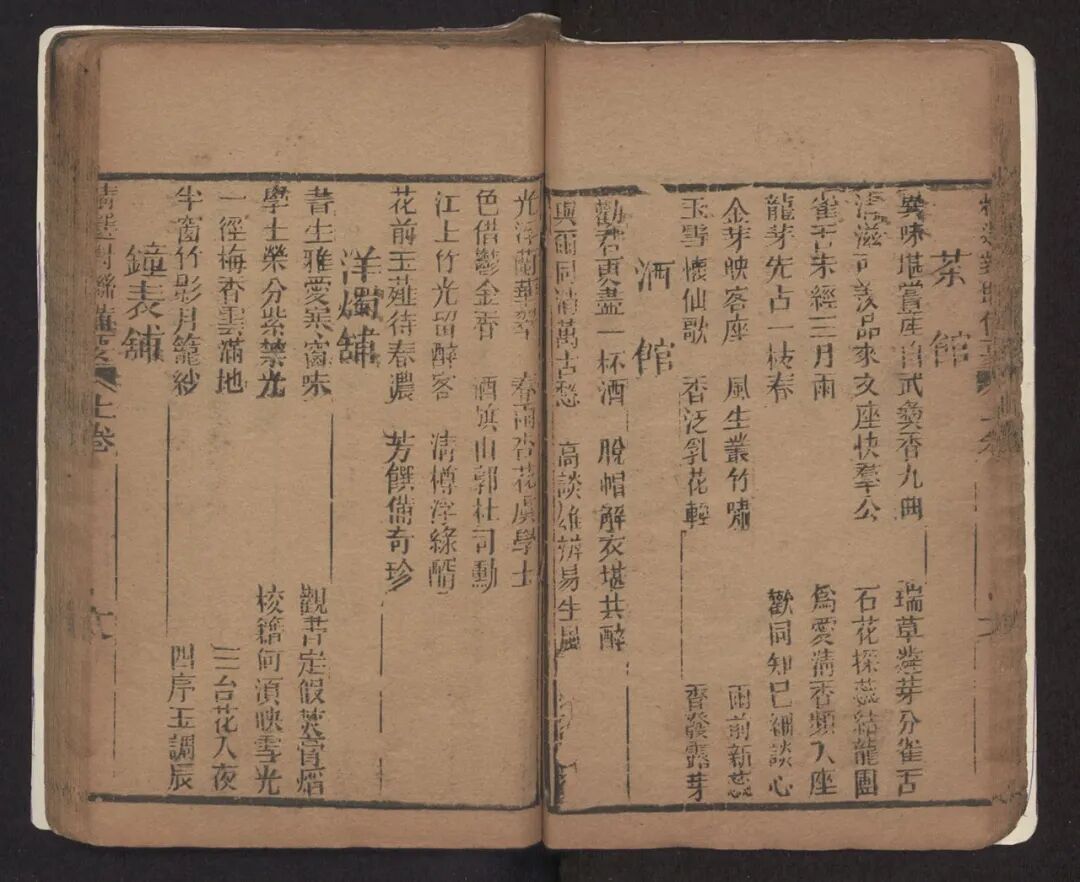 茶館
異味堪嘗產自武彝香九曲 瑞草發芽分雀舌
清滋可羨品來文座快羣公 石花採蕊結龍團
雀舌未經三月雨 為愛清香頻入座
龍芽先占一枝春 歡同知己細談心
金芽映客座 風生叢竹嘯 雨前新蕊
玉雪懷仙歌 香泛乳花輕 齊發露芽
酒館
勸君更盡一杯酒 脫帽解衣堪共醉
與爾同消萬古愁 高談雄辨易生風
光浮蘭華翠 春雨杏花虞學士
色借鬱金香 酒旗山郭杜司勳
江上竹光留醉客 清樽浮綠醑
花前玉薤待春濃 芳饌備奇珍
洋燭舖
書生雅愛寒窗味 觀書定假焚膏熖
學士榮分紫禁光 校籍何須映雪光
一徑梅香雲滿地 三台花入夜
半窗竹影月籠紗 四序玉調辰
鐘表舖
精選對聯備要 上卷